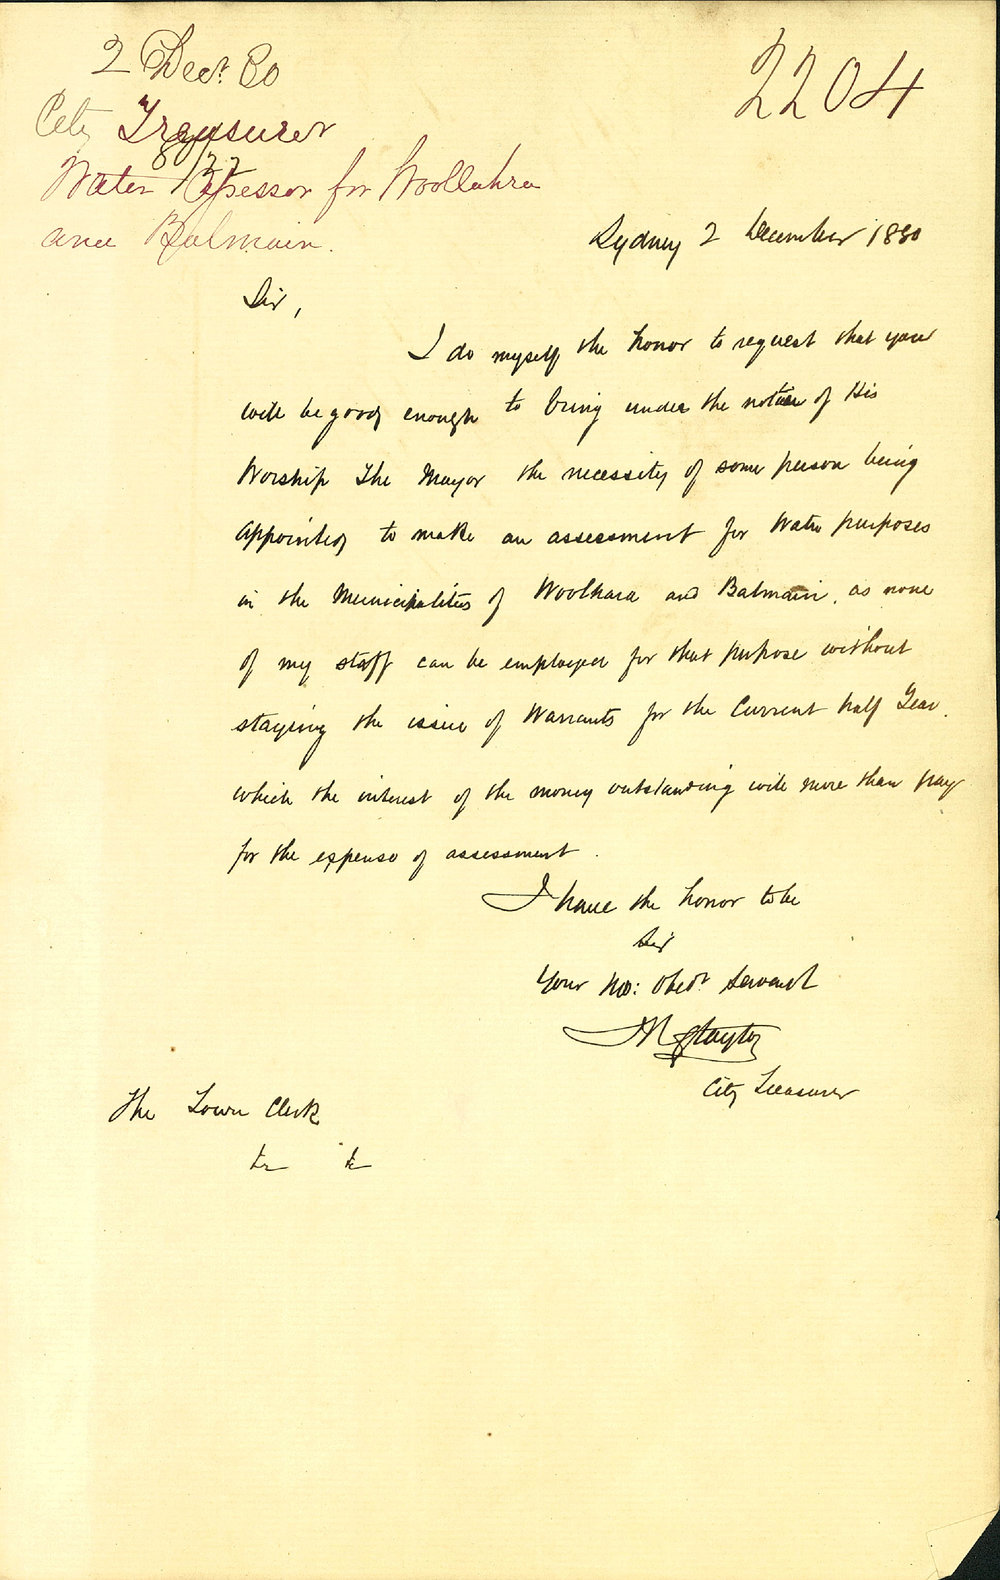 2 Decr. 80
2204
City Treasurer
80/22
Water Assessor for Woollahra
and Balmain.
Sydney 2 December 1880
Sir,
I do myself the honor to request that you
will be good enough to bring under the notice of His
Worship The Mayor the necessity of some person being
appointed to make an assessment for Water purposes
in the Municipalities of Woolhara and Balmain, as none
of my staff can be employed for that purpose without
staying the issue of Warrants for the Current half Year.
which the interest of the money outstanding will more than pay
for the expense of assessment.
I have the honor to be
Sir
Your Mo: Obedt. Servant
City Treasurer
The Town Clerk